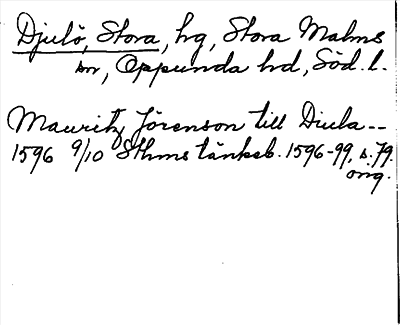 Djulö, Stora, hg, Stora Malms
sn, Oppunda hd, Söd. l.
Mauritz Jörenson till Diula--
1596 9/10 Sthms tänkeb. 1596-99, s. 79.
orig.